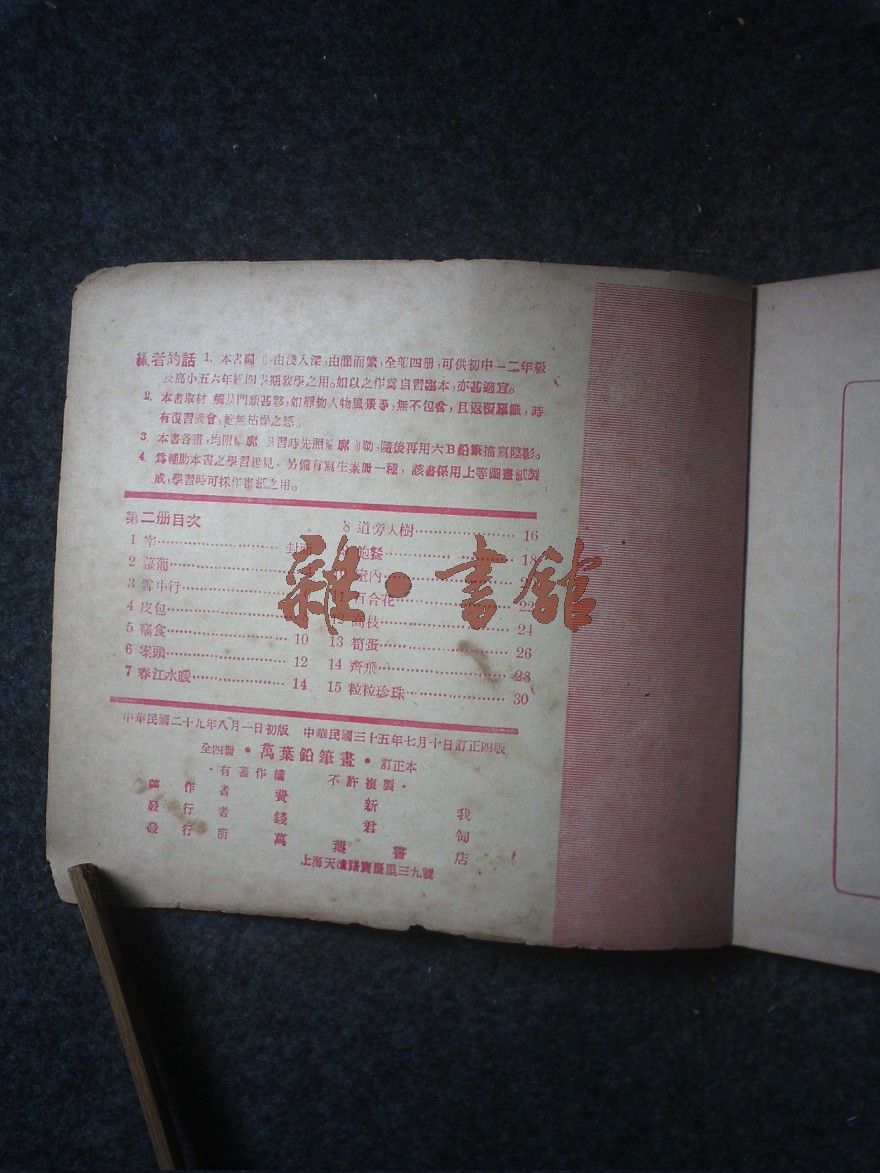 編者的話 1. 本書編 由淺入深,由簡而繁,全部四册,可供初中一二年級
及高小五六年級四學期教學之用。如以之作爲自習臨本,亦甚適宜。
2. 本書取材 觸及門類甚夥,如靜物人物風景等,無不包含,且返復羅織,時
有復習機會,絕無枯燥之感。
3. 本書各畫,均附輪廓 學習時先照輪廓勾勒,隨後再用六B鉛筆描寫陰影。
4. 爲補助本書之學習起見,另備有寫生素册一種,該書係用上等圖畫紙製
成,學習時可採作畫紙之用。
第二册目次
1 牢 封面
2 蘿蔔
3 雪中行
4 皮包
5 竊食 10
6 案頭 12
7 春江水暖 14
8 道旁大樹 16
9 飽餐 18
室內
11 百合花 22
12 高枝 24
13 筍蛋 26
14 齊飛 28
15 粒粒珍珠 30
中華民國二十九年八月一日初版 中華民國三十五年七月十日訂正四版
全四册・萬葉鉛筆畫・訂正本
・有著作權 不許複製・
著作者 費新我
發行者 錢君匋
發行所 萬葉書店
上海天潼路寶慶里三九號
雜・書館